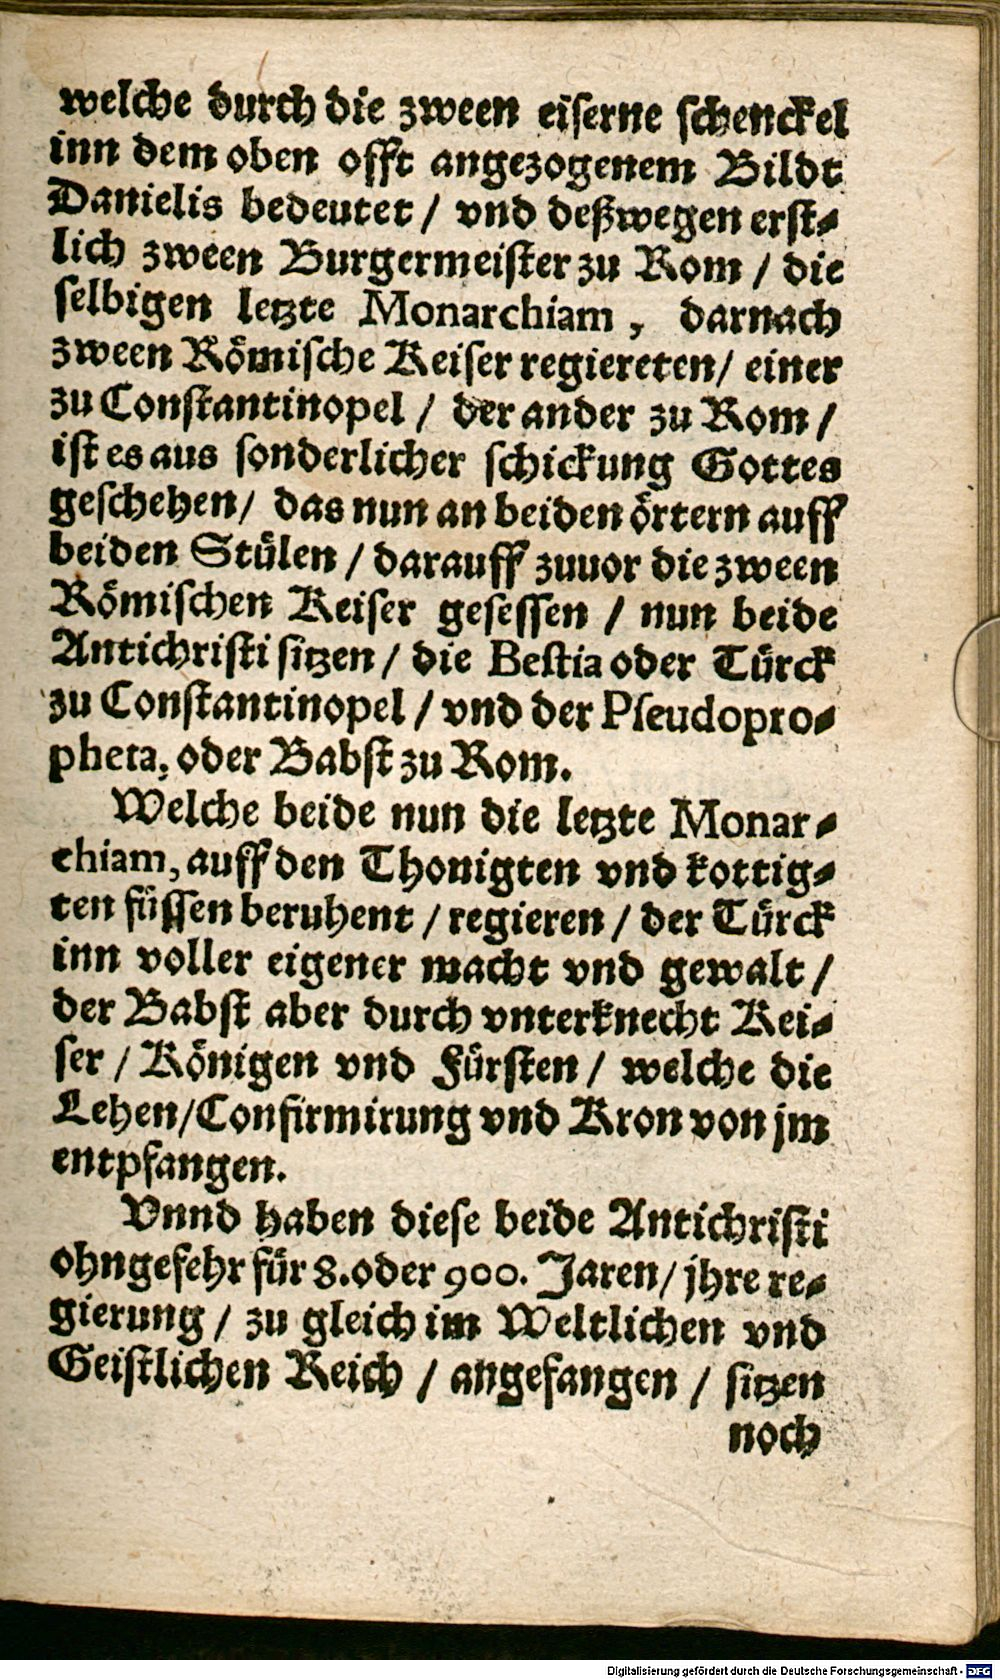 welche durch die zween eiserne schenckel
inn dem oben offt angezogenem Bildt
Danielis bedeutet / vnd deßwegen erst⸗
lich zween Burgermeister zu Rom / die
selbigen letzte Monarchiam, darnach
zween Römische Keiser regiereten / einer
zu Constantinopel / der ander zu Rom /
ist es aus sonderlicher schickung Gottes
geschehen / das nun an beiden örtern auff
beiden Stülen / darauff zuuor die zween
Römischen Keiser gesessen / nun beide
Antichristi sitzen / die Bestia oder Türck
zu Constantinopel / vnd der Pseudopro⸗
pheta, oder Babst zu Rom.
Welche beide nun die letzte Monar⸗
chiam, auff den Thonigten vnd kottig⸗
ten füssen beruhent / regieren / der Türck
inn voller eigener macht vnd gewalt /
der Babst aber durch vnterknecht Kei⸗
ser / Königen vnd Fürsten / welche die
Lehen / Confirmirung vnd Kron von jm
entpfangen.
Vnnd haben diese beide Antichristi
ohngefehr für 8. oder 900. Jaren / jhre re⸗
gierung / zu gleich im Weltlichen vnd
Geistlichen Reich / angefangen / sitzen
noch
Digitalisierung gefördert durch die Deutsche Forschungsgemeinschaft - DFG